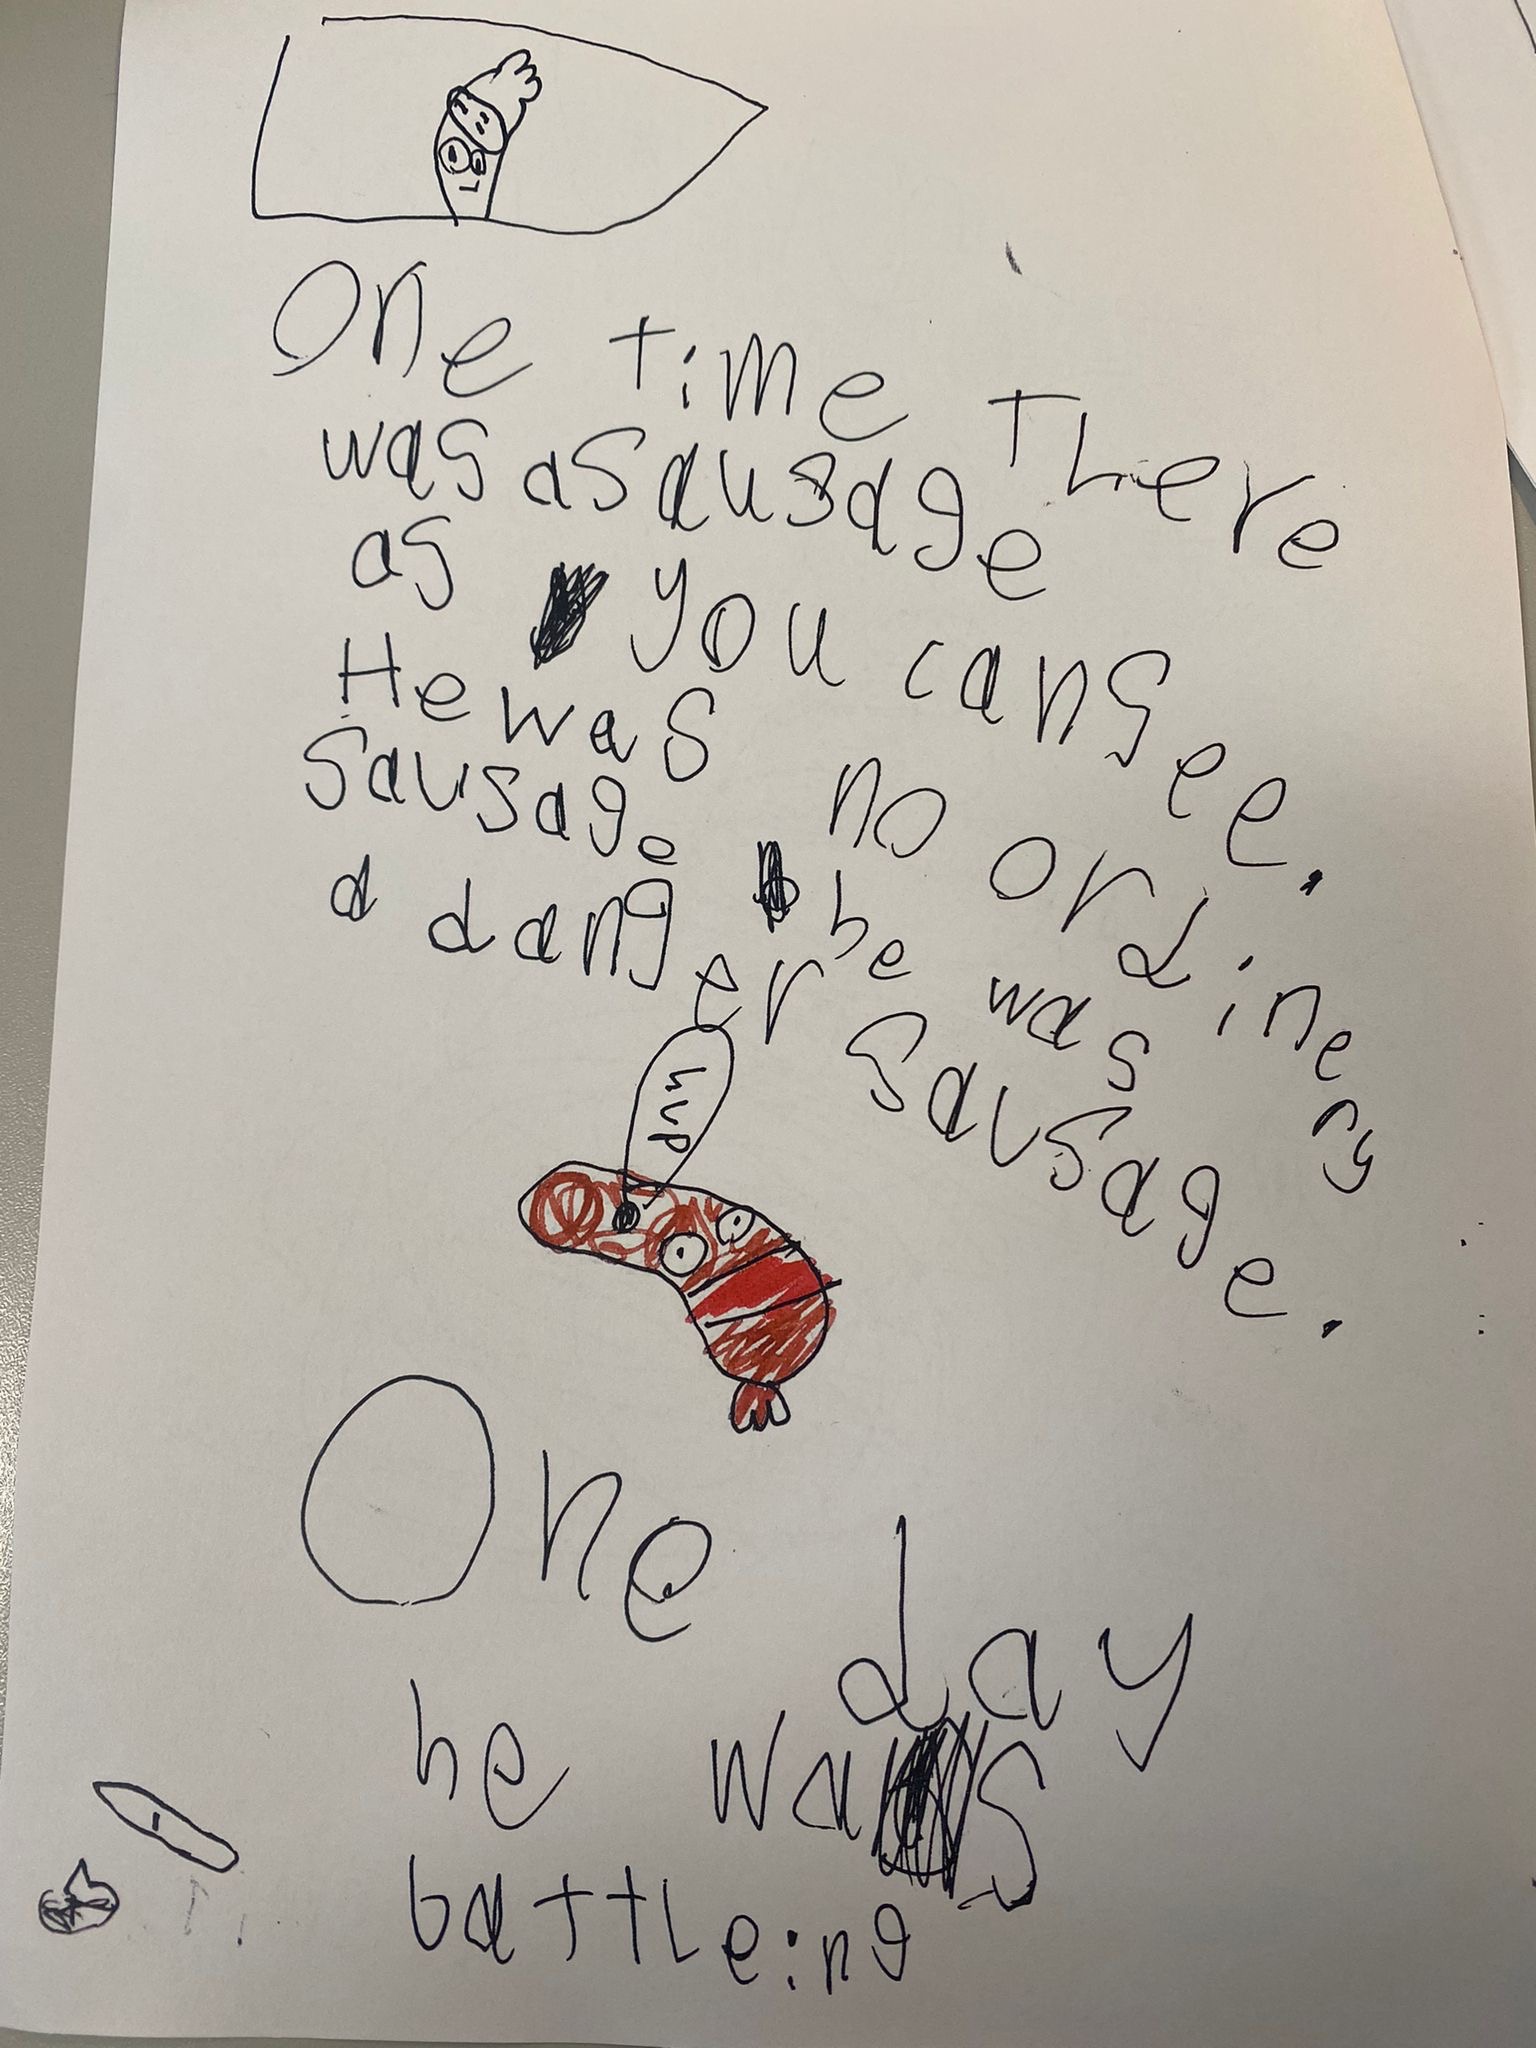 One time there
was a sausage
as you can see.
He was no ordinery
sausage he was
a danger sausage.
hup
One day
he was
battleing